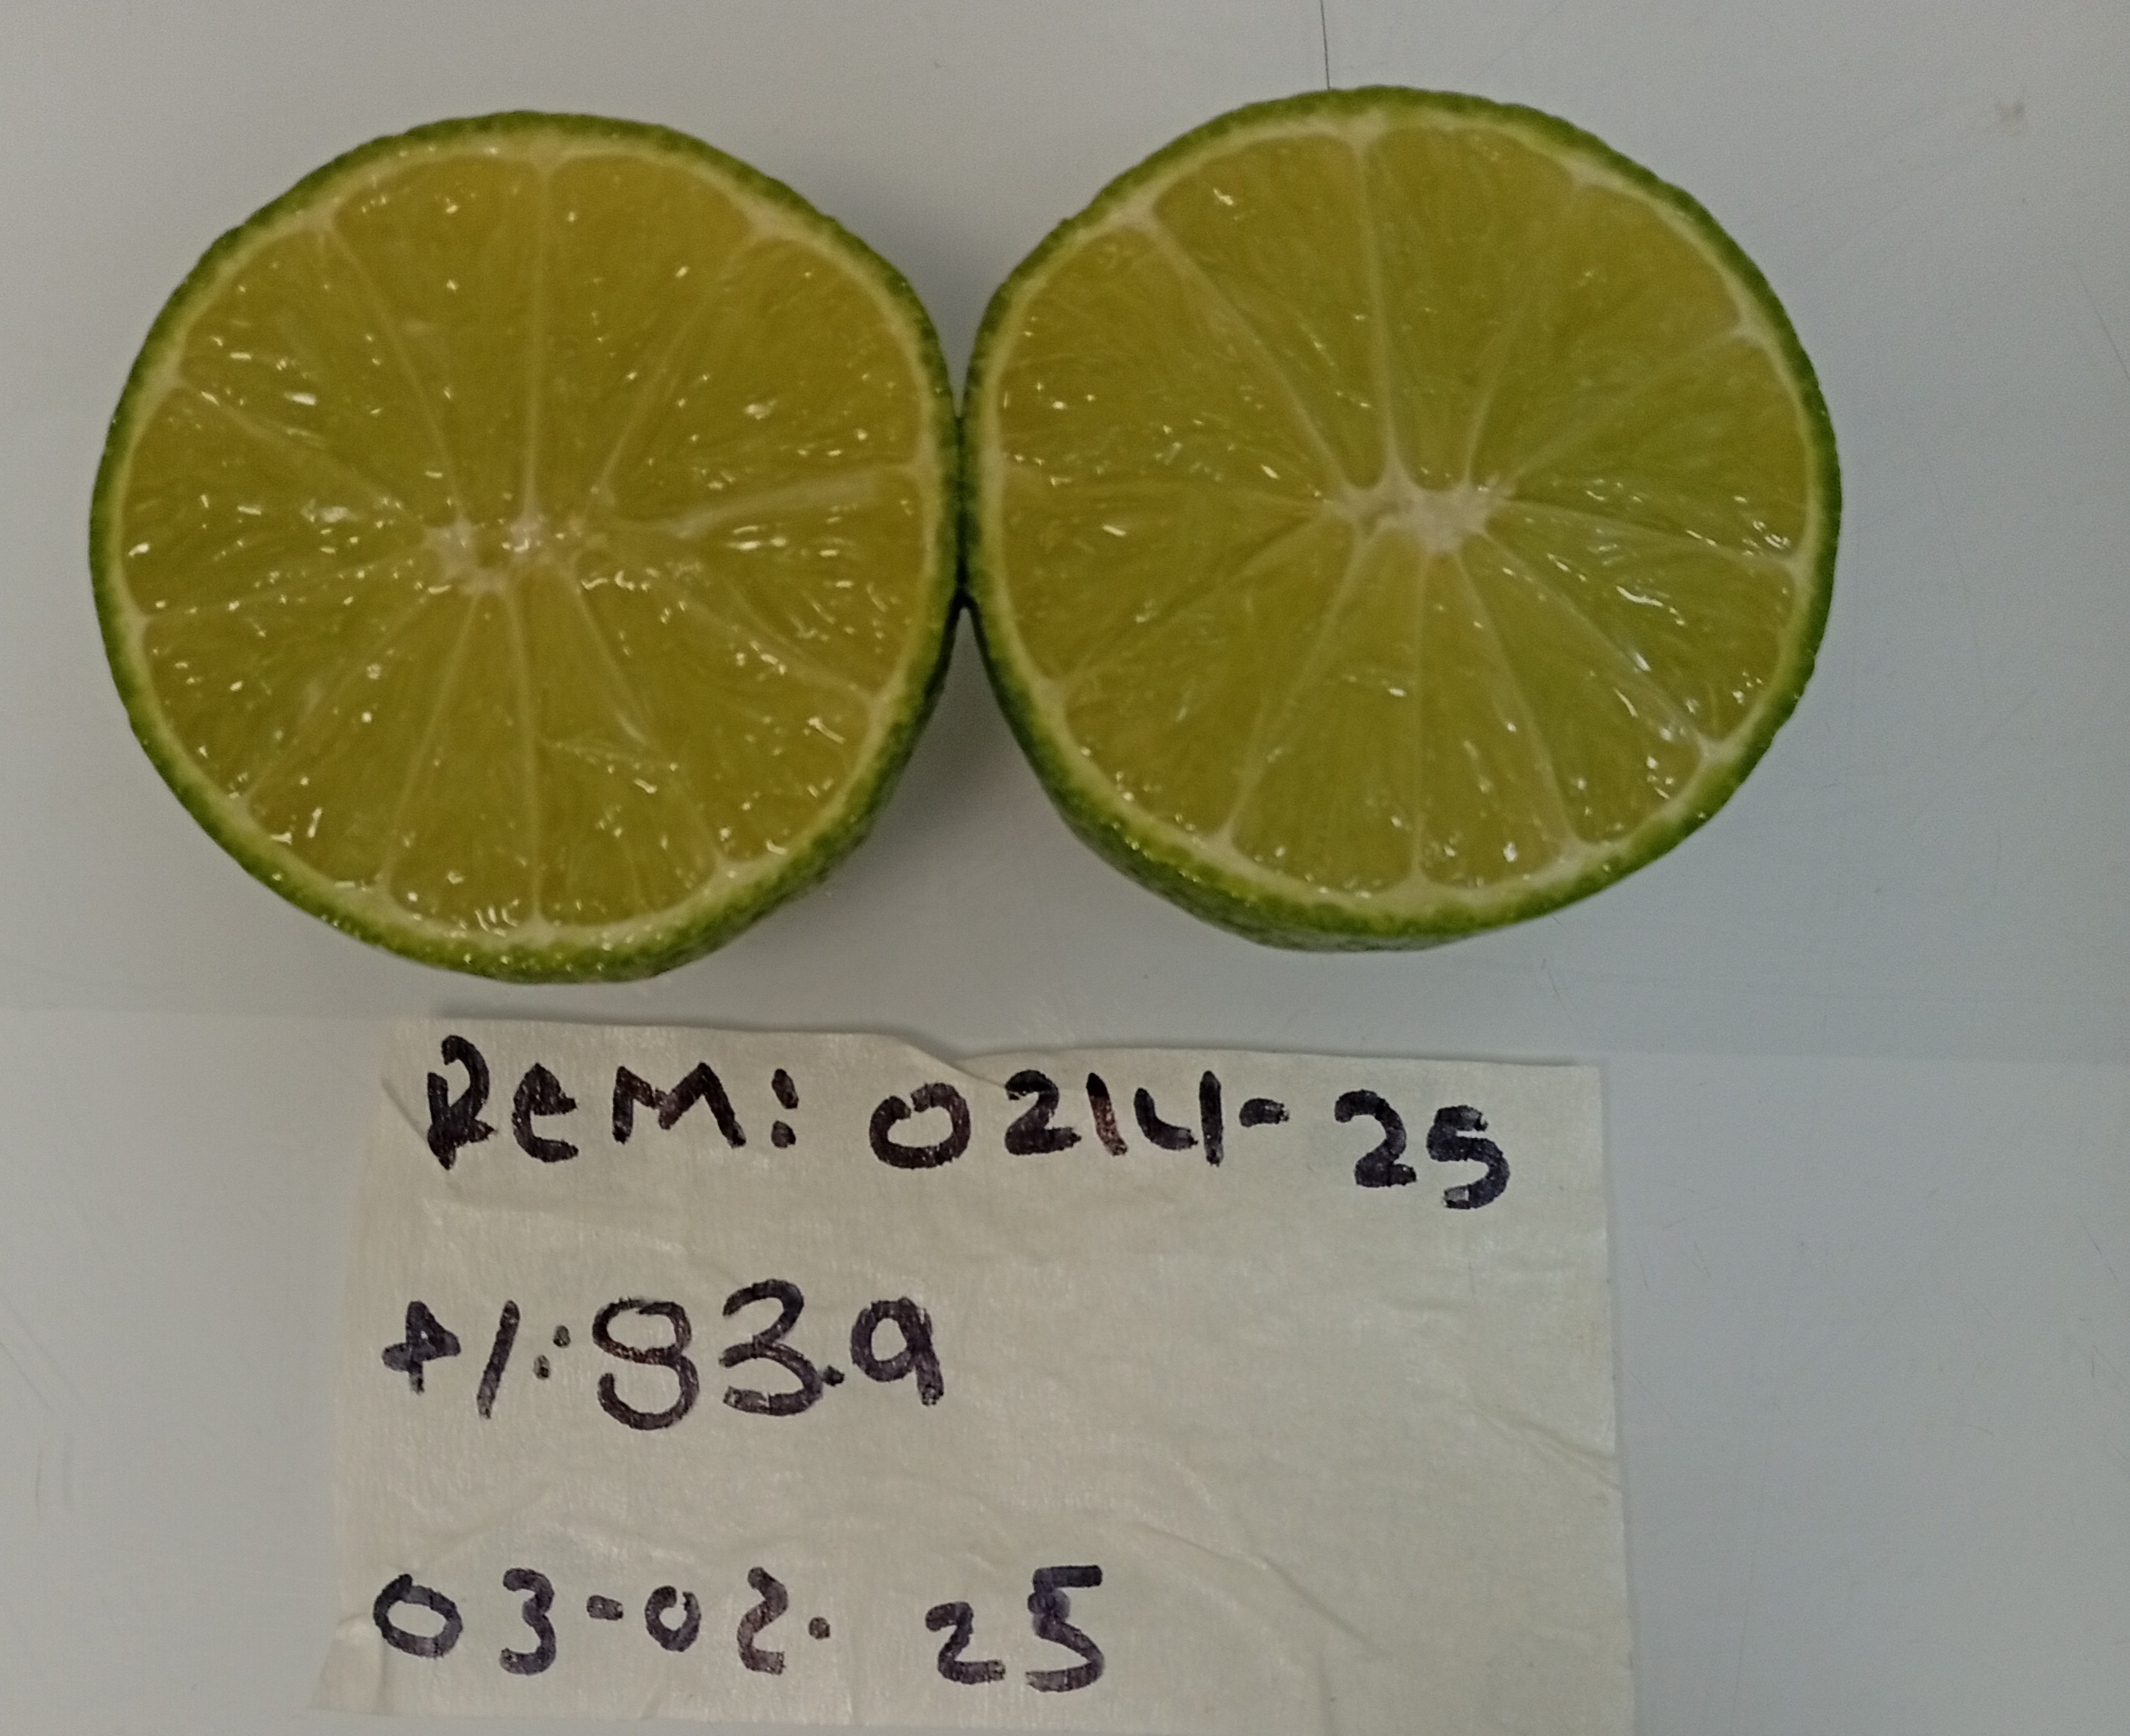 Rem: 0214-25
+/: 83.9
03-02. 25